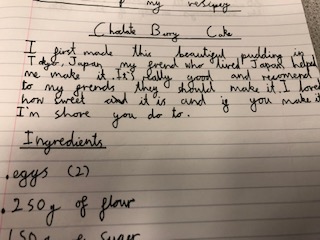 my rescipey
Choclate Berry Cake
I first made this beautiful pudding in
Tokyo, Japan my frend who lived Japan helped
me make it. It's really good and recomend
to my frends they should make it. I loved
how sweet and it is and if you make it
I'm shore you do to.
Ingredients
. eggs (2)
. 250g of flour
150g of Suger